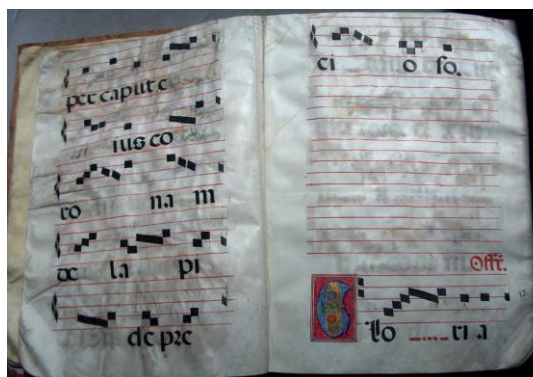 per caput e
ius co
ro na m
de la pi
de pre
ci o so.
Offt.
Glo ria